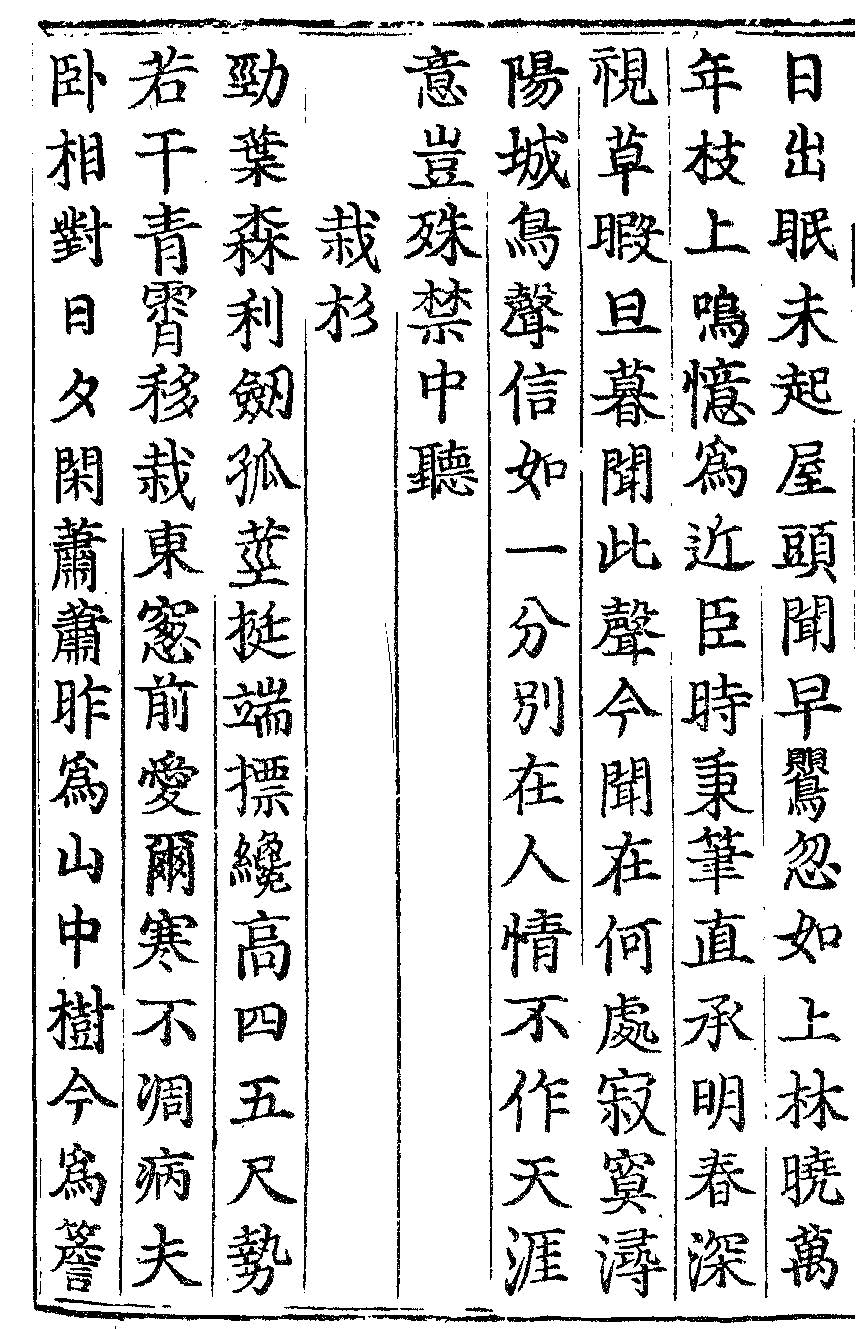 日出眠未起屋頭聞早鸎忽如上林曉萬
年枝上鳴憶爲近臣時秉筆直承明春深
視草暇旦暮聞此聲今聞在何處寂寞潯
陽城鳥聲信如一分別在人情不作天涯
意豈殊禁中聽
栽杉
勁葉森利劒孤莖挺端摽纔高四五尺勢
若干青霄移栽東窓前愛爾寒不凋病夫
卧相對日夕閑蕭蕭昨爲山中樹今爲簷